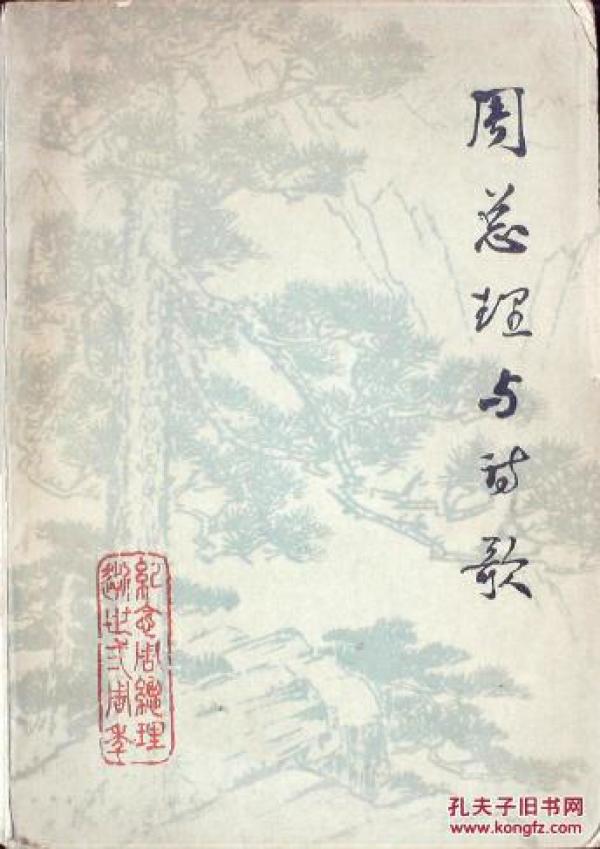 周总理与诗歌
纪念周總理
逝世二周年
孔夫子旧书网
www.kongfz.com